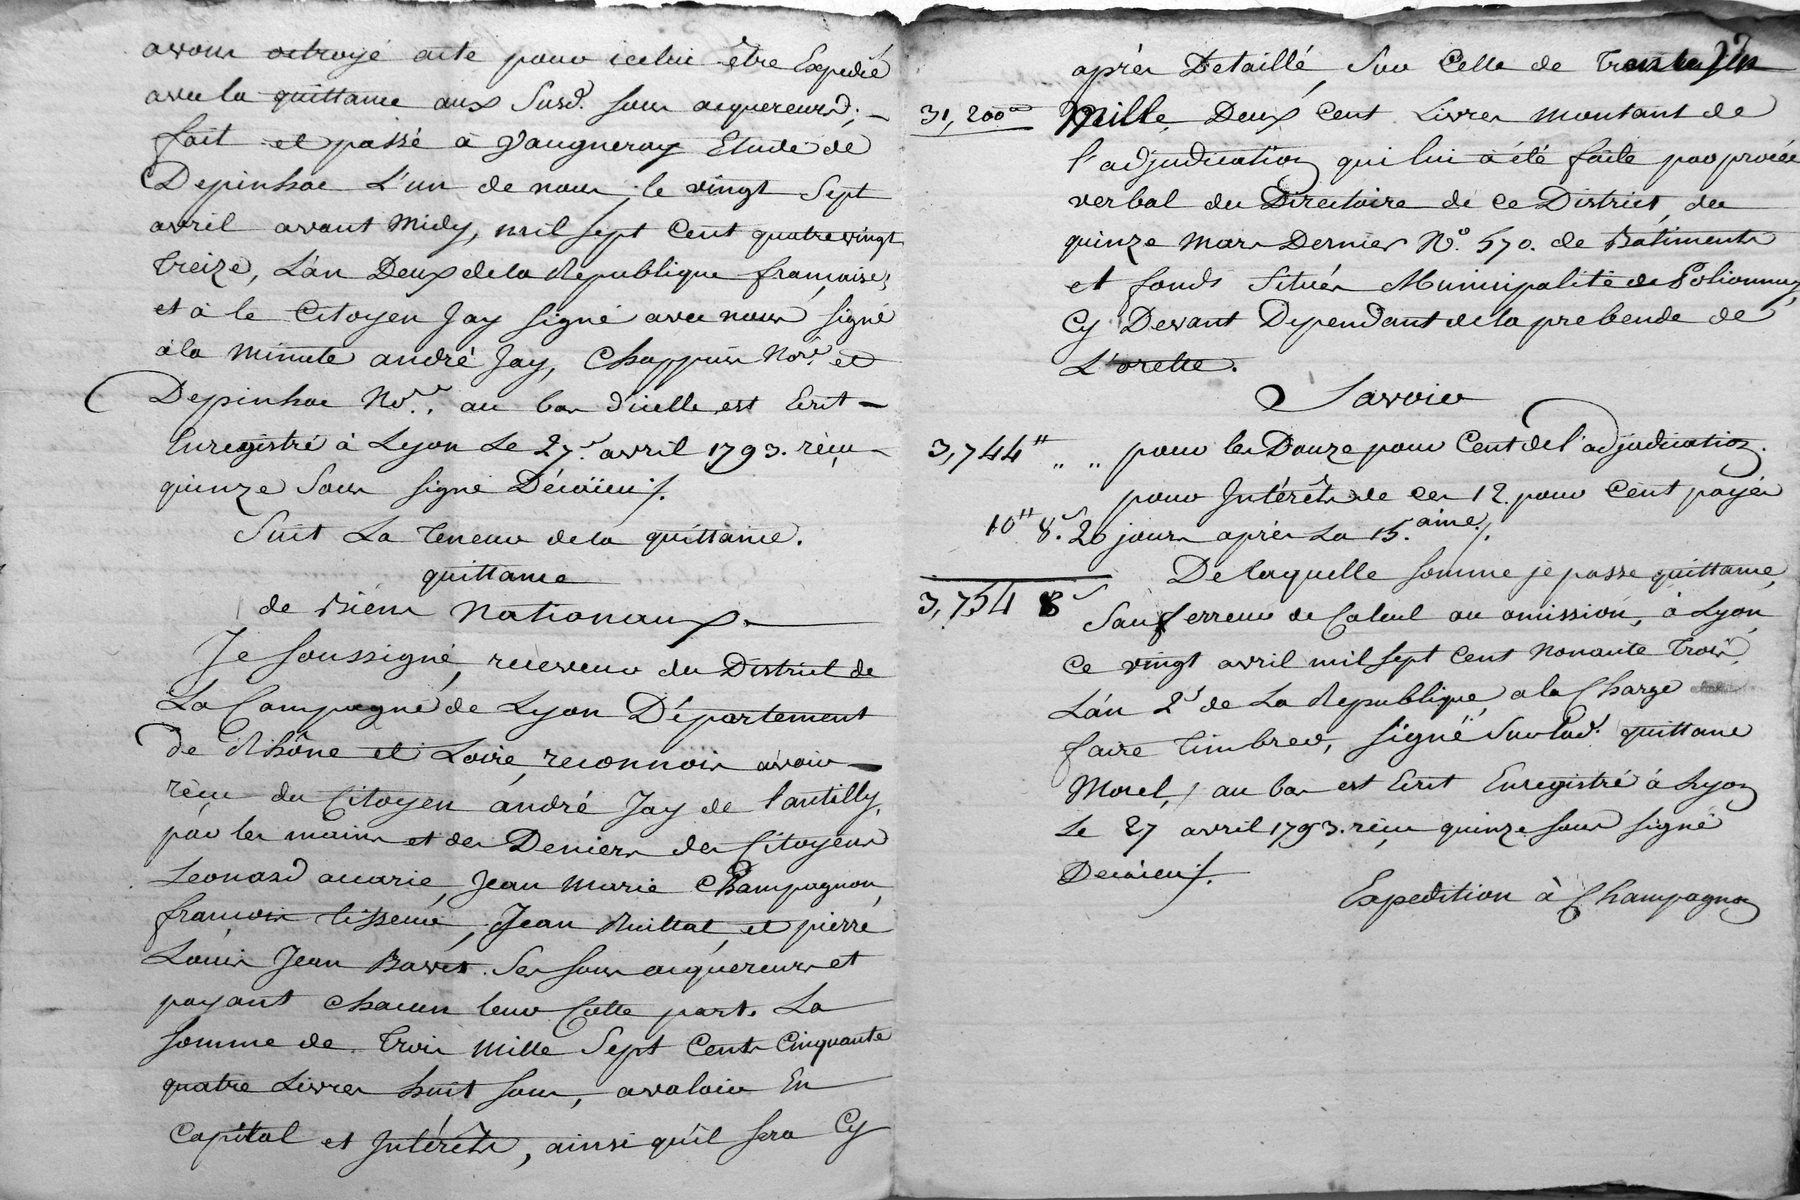 avons octroyé acte pour icelui être Expedié
avec la quittance aux Susd. sous acquereurs;
fait et passé à Vaugneray Etude de
Depinhac L'un de nous, le vingt Sept
avril avant Midy, mil sept Cent quatrevingt
Treize, L'an Deux de la Republique française,
et à le Citoyen Jay signé avec nous signé
à la minute andré Jay, Chappuis No.re et
Depinhac No.re, au bas d'icelle est Ecrit
Enregistré à Lyon Le 27. avril 1793. réçu
quinze Sous signé
Suit La Teneur de la quittance.
quittance
de Biens Nationaux.
Je soussigné, receveur du District de
La Campagne de Lyon Département
de Rhône et Loire, reconnois avoir
réçu du Citoyen andré Jay de Lantilly,
par les mains et des Deniers des Citoyens
Leonard accarie, Jean Marie Champagnon,
françois tisseur, Jean Ruillat, et pierre
Louis Jean Ses sous acquereurs et
payant chacun leur Cotte part. La
somme de Trois Mille Sept Cents Cinquante
quatre Livres huit sous, avaloir En
Capital et Intérêts, ainsi qu'il sera Cy
après Detaillé, Sur Celle de Trente un
31,200 Mille, Deux Cent Livres montant de
l'adjudication qui lui à été faite par procès
verbal du Directoire de ce District, du
quinze Mars Dernier N.o 570. de Batiments
et fonds Situés Municipalité de Polionnay,
Cy Devant Dependant de la prebende de
L'orette.
Savoir
3,744" " " pour les Douze pour Cent de l'adjudication.
pour Intérêts de ces 12. pour Cent payés
10" 8.s 20 jours après La 15.aine
De laquelle somme je passe quittance,
3,754 8.s Sauf erreur de Calcul ou omission, à Lyon,
Ce vingt avril mil sept Cent Nonante Trois,
L'an 2.d de La Republique, a la Charge
faire Timbrer, signé Sur lad. quittance
Morel, / au bas est Ecrit Enregistré à Lyon
Le 27 avril 1793. réçu quinze sous signé
Expedition à Champagnon